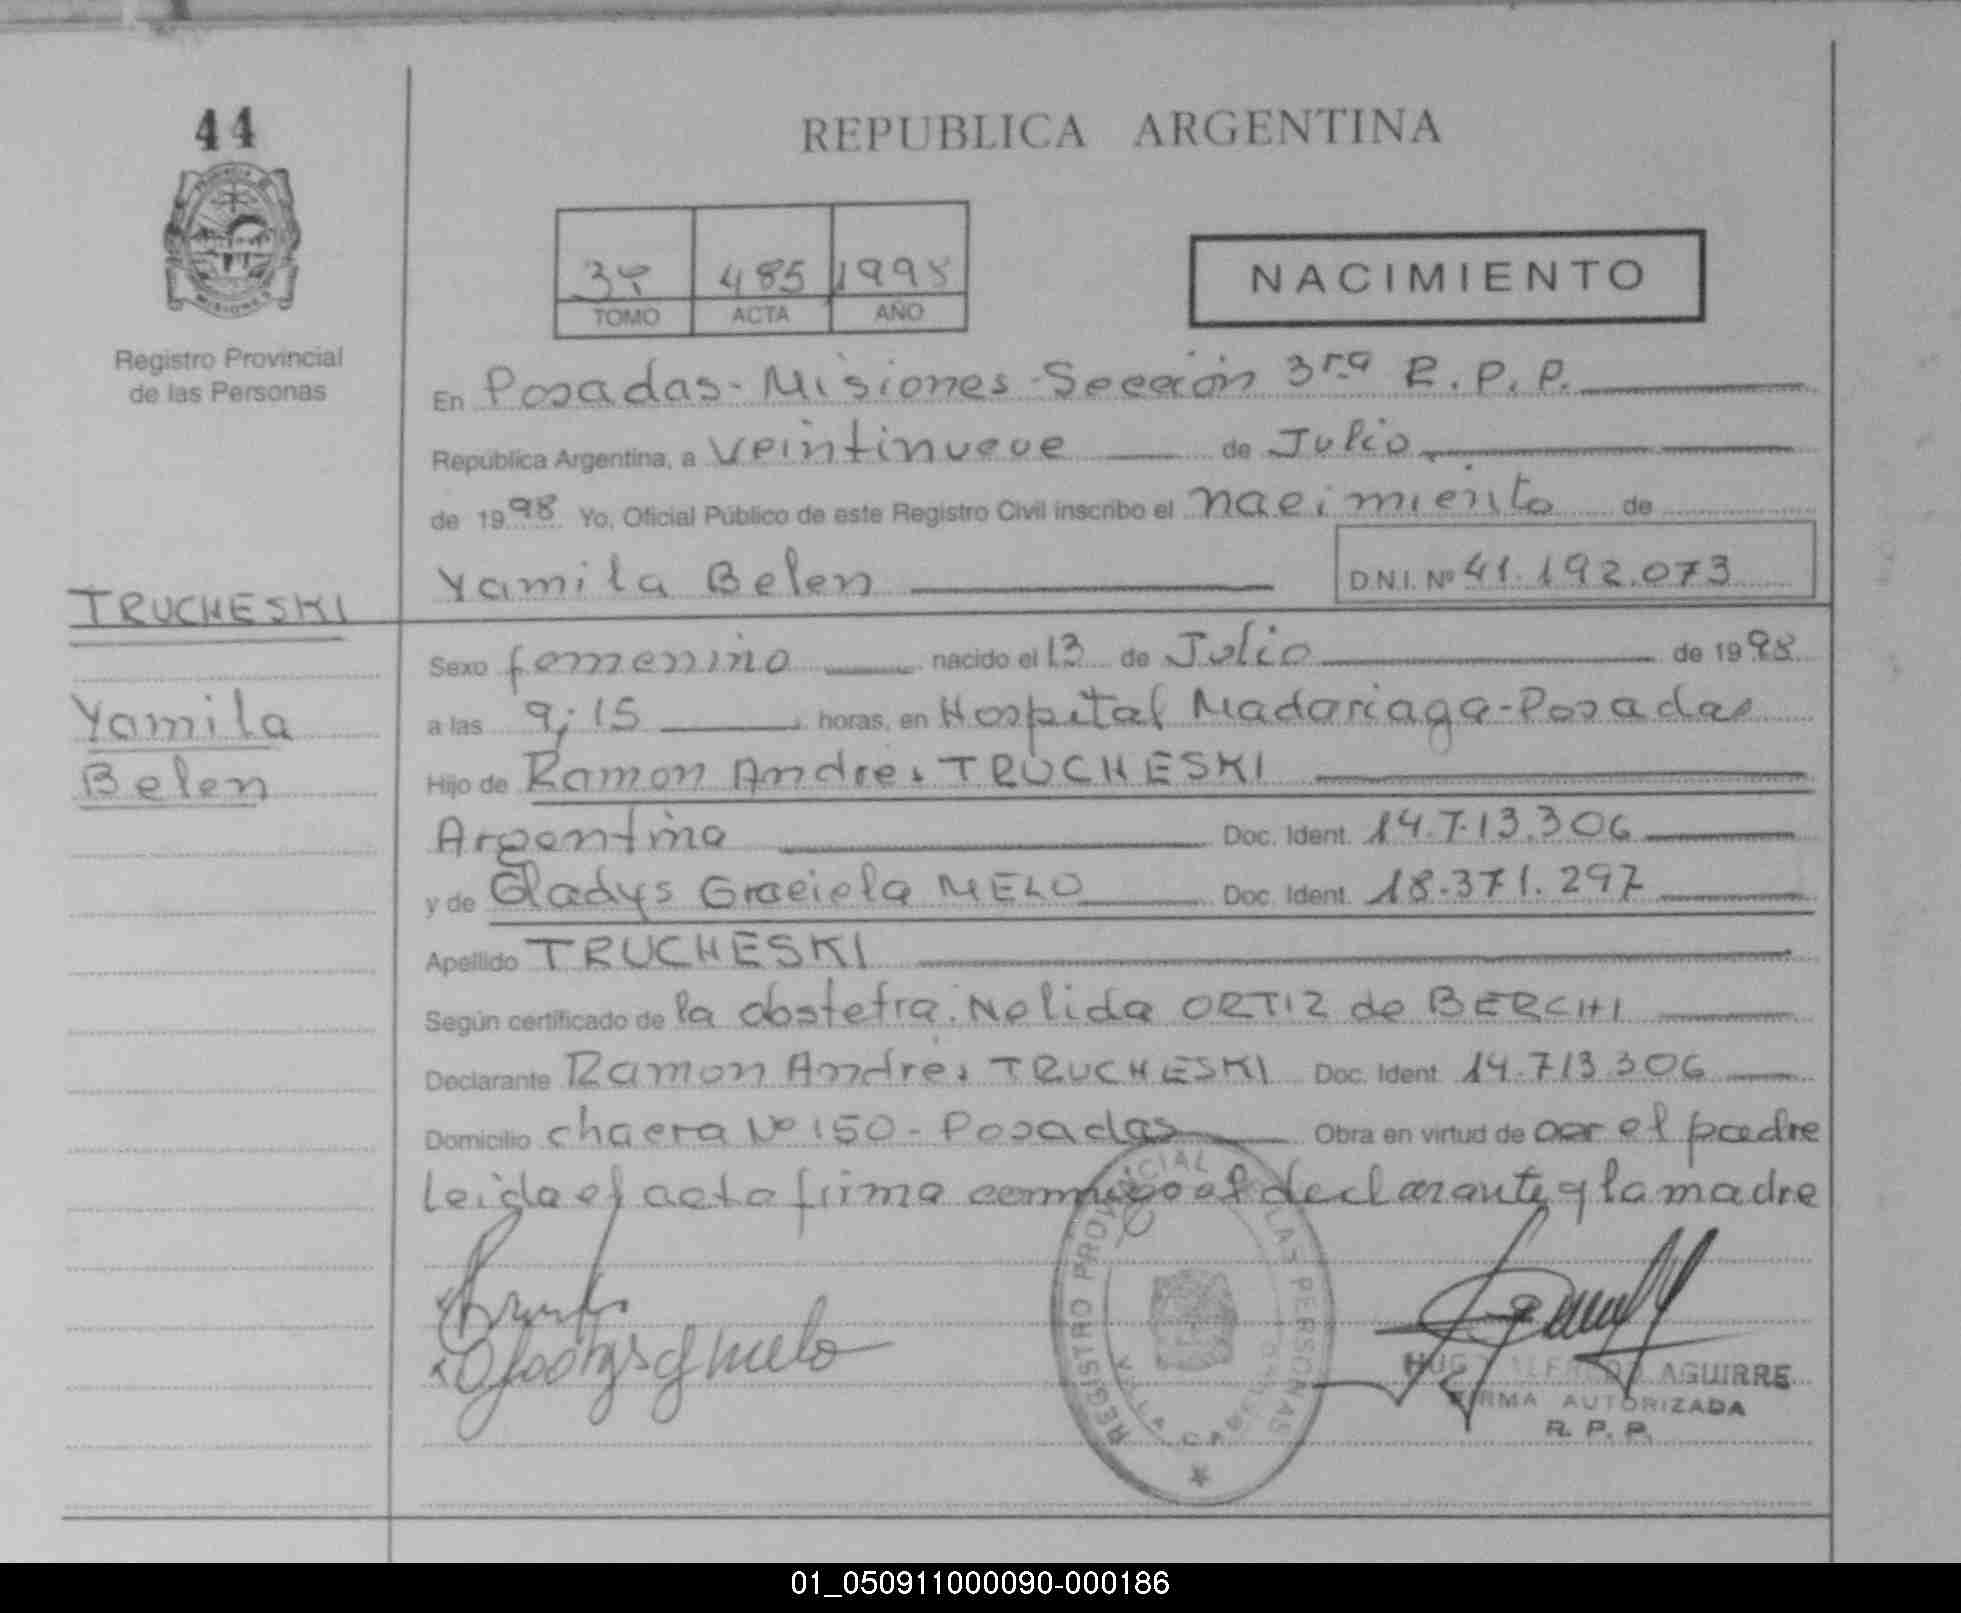 44
REPUBLICA ARGENTINA
485 1998
TOMO ACTA AÑO
NACIMIENTO
Registro Provincial
de las Personas
En Posadas - Misiones - Sección 3ra R.P.P.
República Argentina, a veintinueve de Julio
de 1998 Yo, Oficial Público de este Registro Civil inscribo el nacimiento de
Yamila Belen D.N.I. Nº 41.192.073
TRUCHESKI
Yamila
Belen
Sexo femenino nacido el 13 de Julio de 1998
a las 9;15 horas, en Hospital Madariaga - Posadas
Hijo de Ramon Andrés TRUCHESKI
Argentina Doc. Ident. 14.713.306
y de Gladys Graciela MELO Doc. Ident. 18.371.297
Apellido TRUCHESKI
Según certificado de la obstetra. Nelida ORTIZ de BERCHI
Declarante Ramon Andrés TRUCHESKI Doc. Ident. 14.713.306
Domicilio chacra Nº 150 - Posadas Obra en virtud de ser el padre
Leida el acta firma conmigo el declarante y la madre
REGISTRO PROVINCIAL DE LAS PERSONAS
VILLA CABELLO
HUGO ALFREDO AGUIRRE
FIRMA AUTORIZADA
R. P. P.
01_050911000090-000186